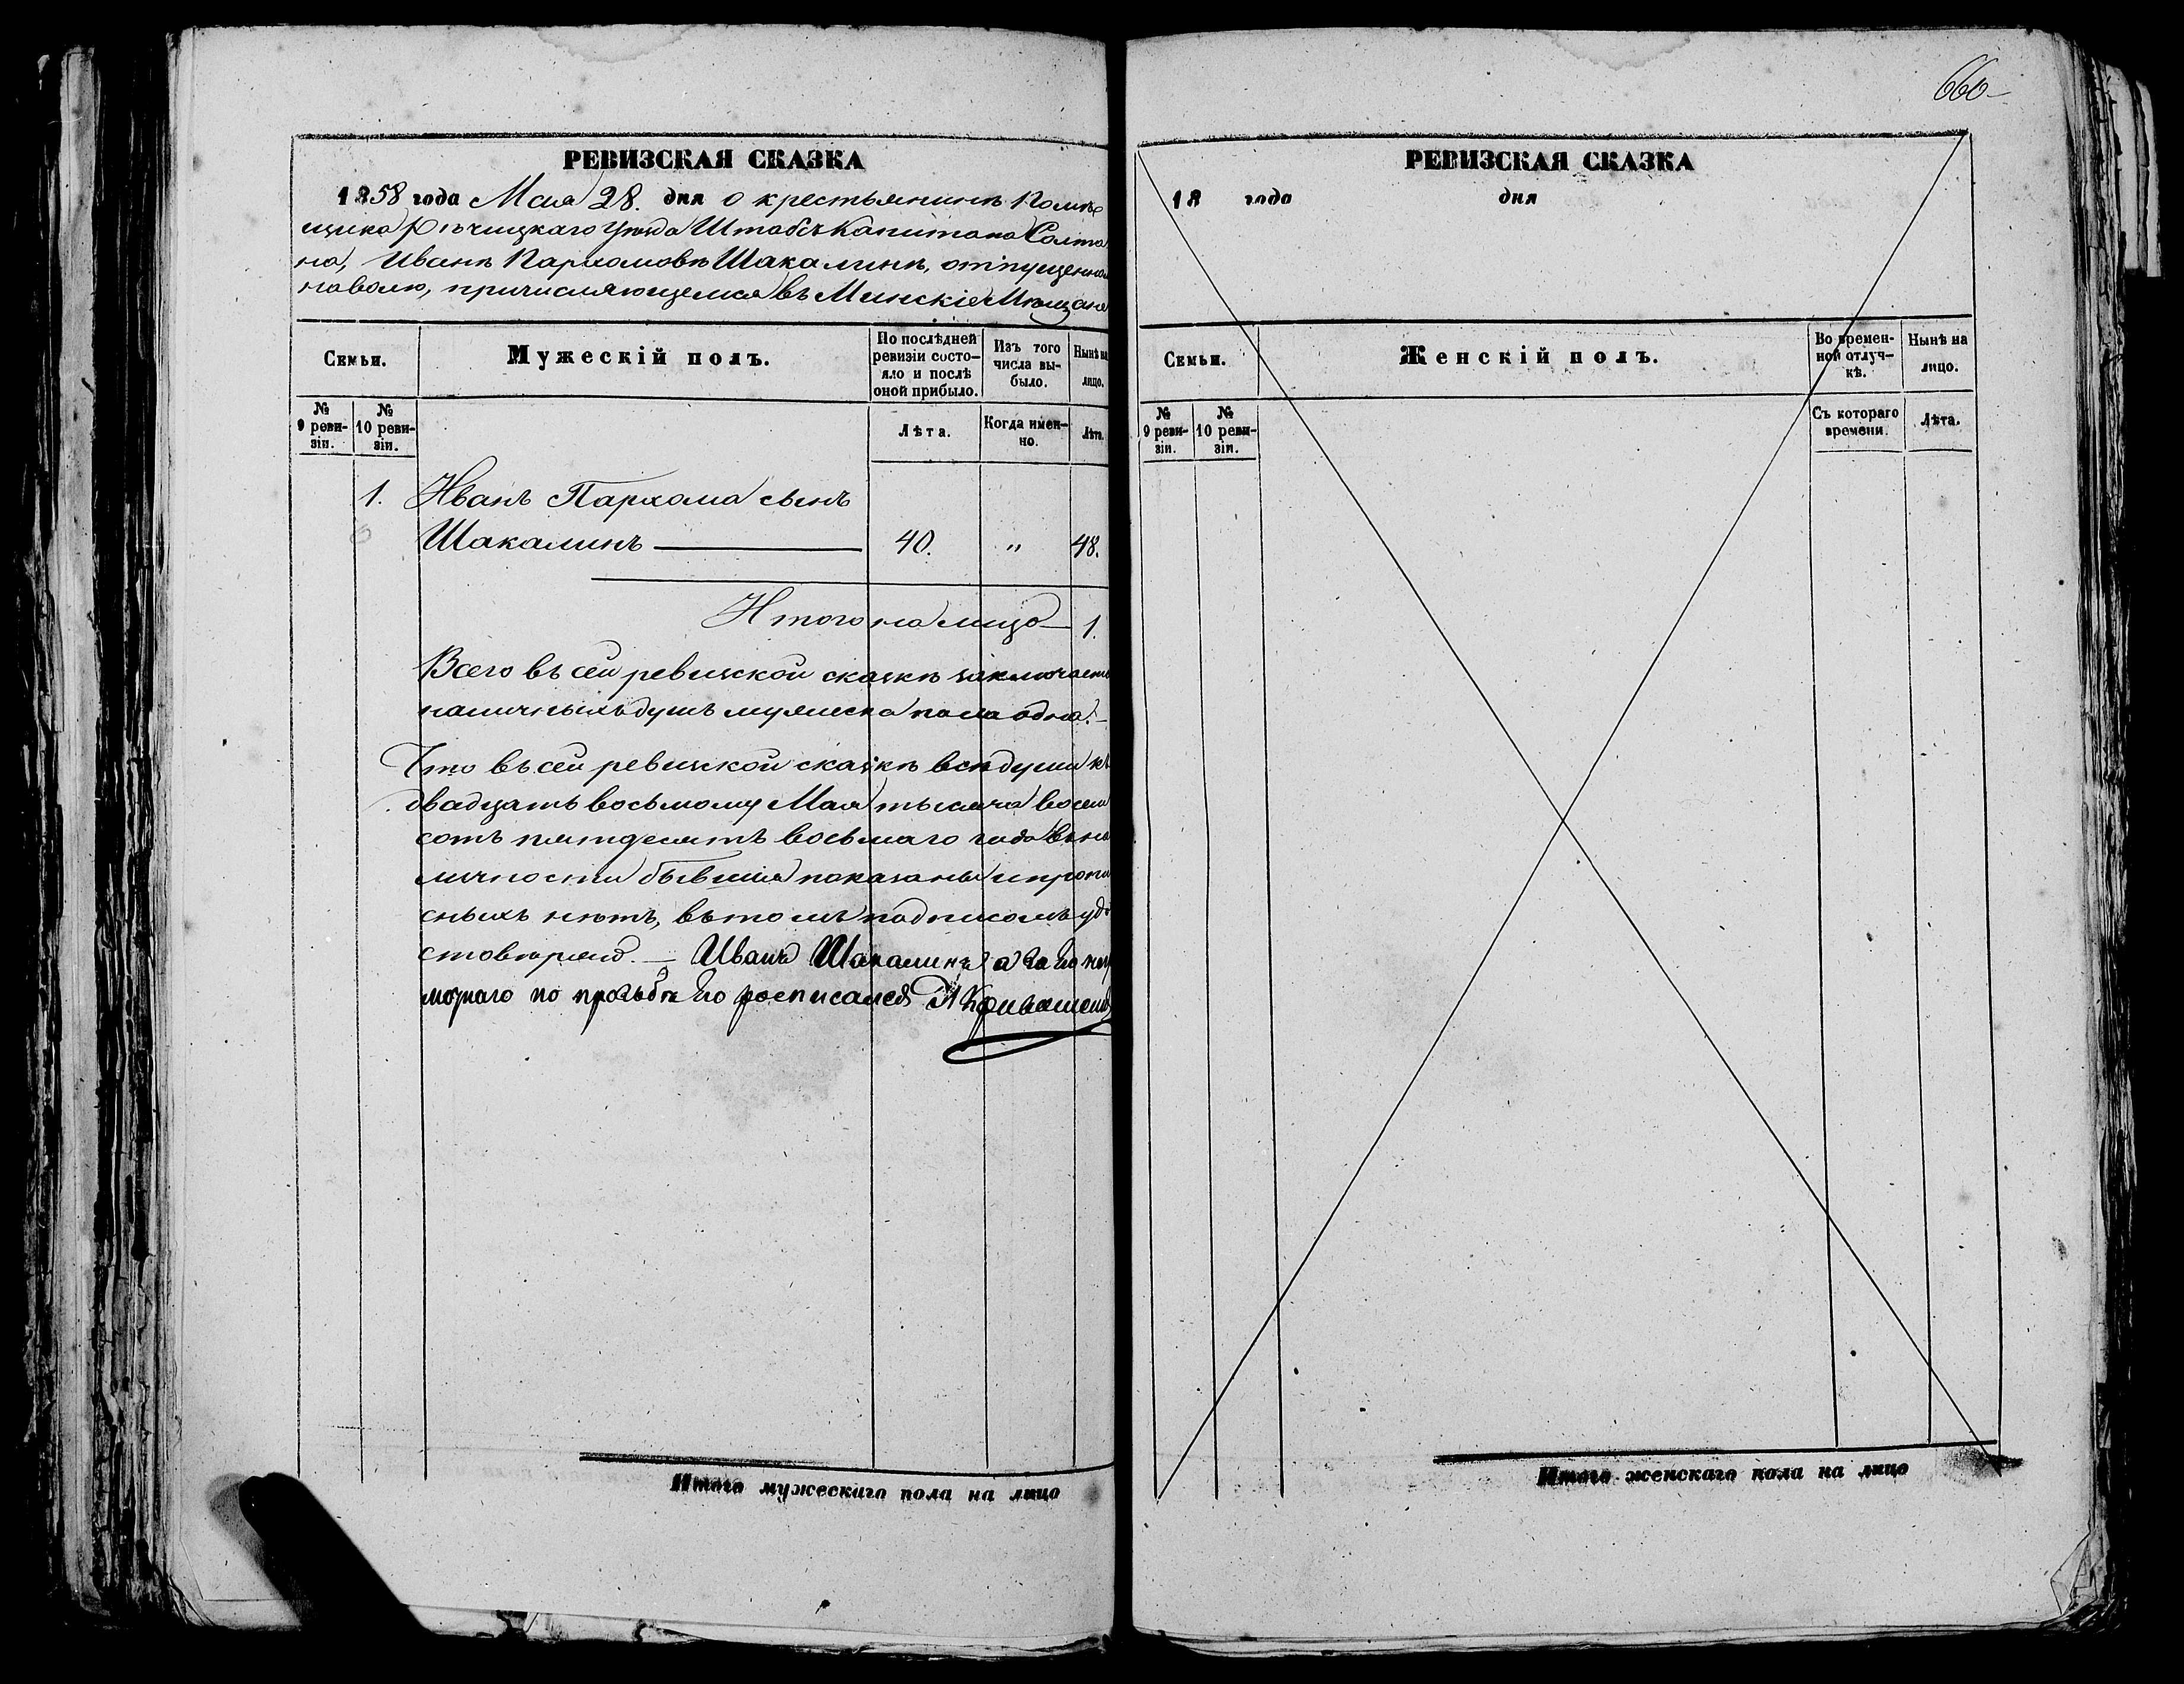 666
РЕВИЗСКАЯ СКАЗКА
1858 года Мая 28. дня о крестьянинѣ Помѣ
щика Рѣчицкаго уѣзда Штабсъ Капитана Солта
на, Иванѣ Пархомовѣ Шакалинѣ, отпущенном
на волю, причисляющемся въ Минскіе Мѣщане
Семьи.
Мужескій полъ.
По послѣдней
ревизіи состо-
яло и послѣ
оной прибыло.
Изъ того
числа вы-
было.
Нынѣ на
лицо.
№
9 реви-
зіи.
№
10 реви-
зіи.
Лѣта.
Когда имен-
но.
Лѣта.
1. Иванъ Пархома сынъ
Шакалинъ — 40. „ 48.
Итого на лицо — 1.
Всего въ сей ревизской сказкѣ заключает
наличныхъ душъ мужеска пола одна. —
Что въ сей ревизской сказкѣ всѣ души къ
двадцать восьмому Мая тысяча восем
сотъ пятдесятъ восьмаго года въ на
личности бывшия показаны и пропи
сныхъ нѣтъ, въ томъ подписомъ удо
стовѣряю. — Иванъ Шакалинъ а за его негр
мотнаго по прозьбѣ его росписался
Итого мужескаго пола на лицо
РЕВИЗСКАЯ СКАЗКА
18 года дня
Семьи.
Женскій полъ.
Во времен-
ной отлуч-
кѣ.
Нынѣ на
лицо.
№
9 реви-
зіи.
№
10 реви-
зіи.
Съ котораго
времени.
Лѣта.
Итого женскаго пола на лицо